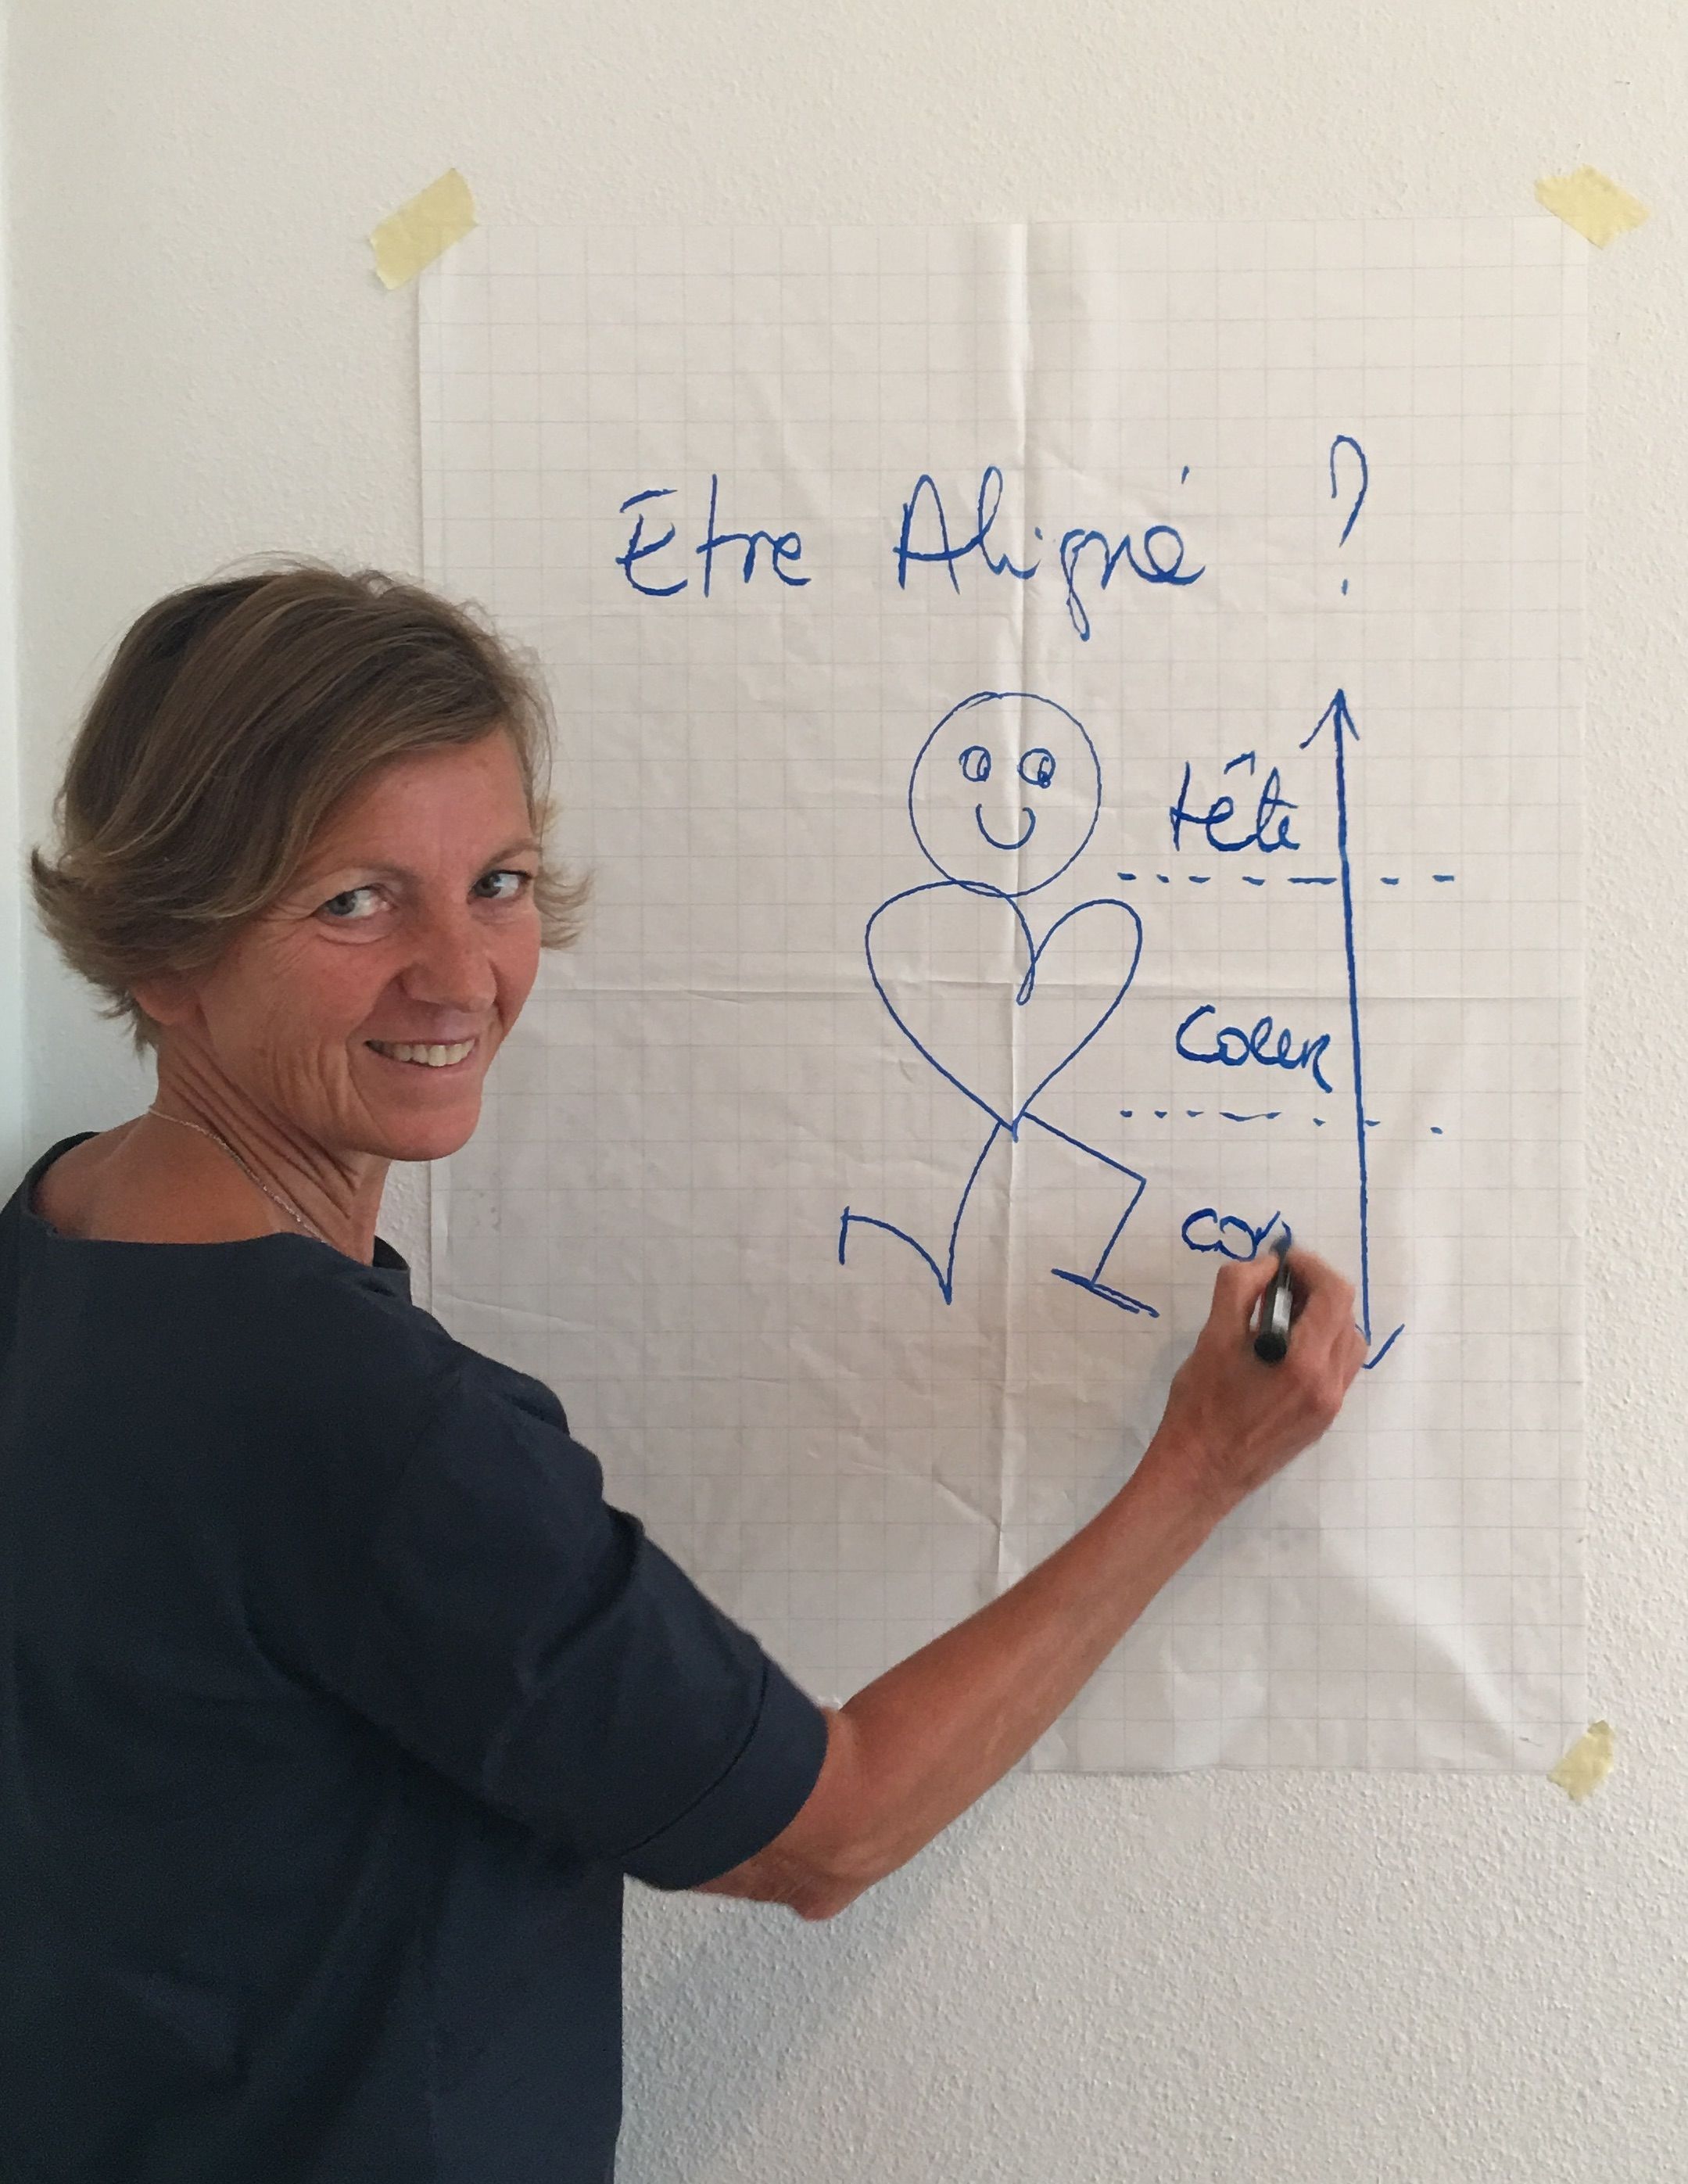 Etre Aligné ?
tête
Coeur
cor